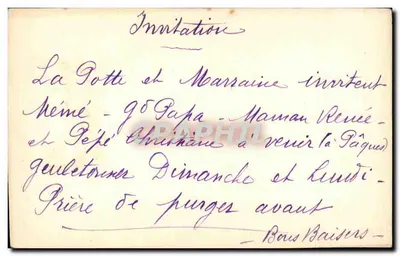 Invitation
La Potte et Marraine invitent
Mémé - gd Papa - Maman Renée -
et Pépé Christiane à venir (à Pâques)
gueuletonner Dimanche et Lundi -
Prière de purger avant
- Bons Baisers -